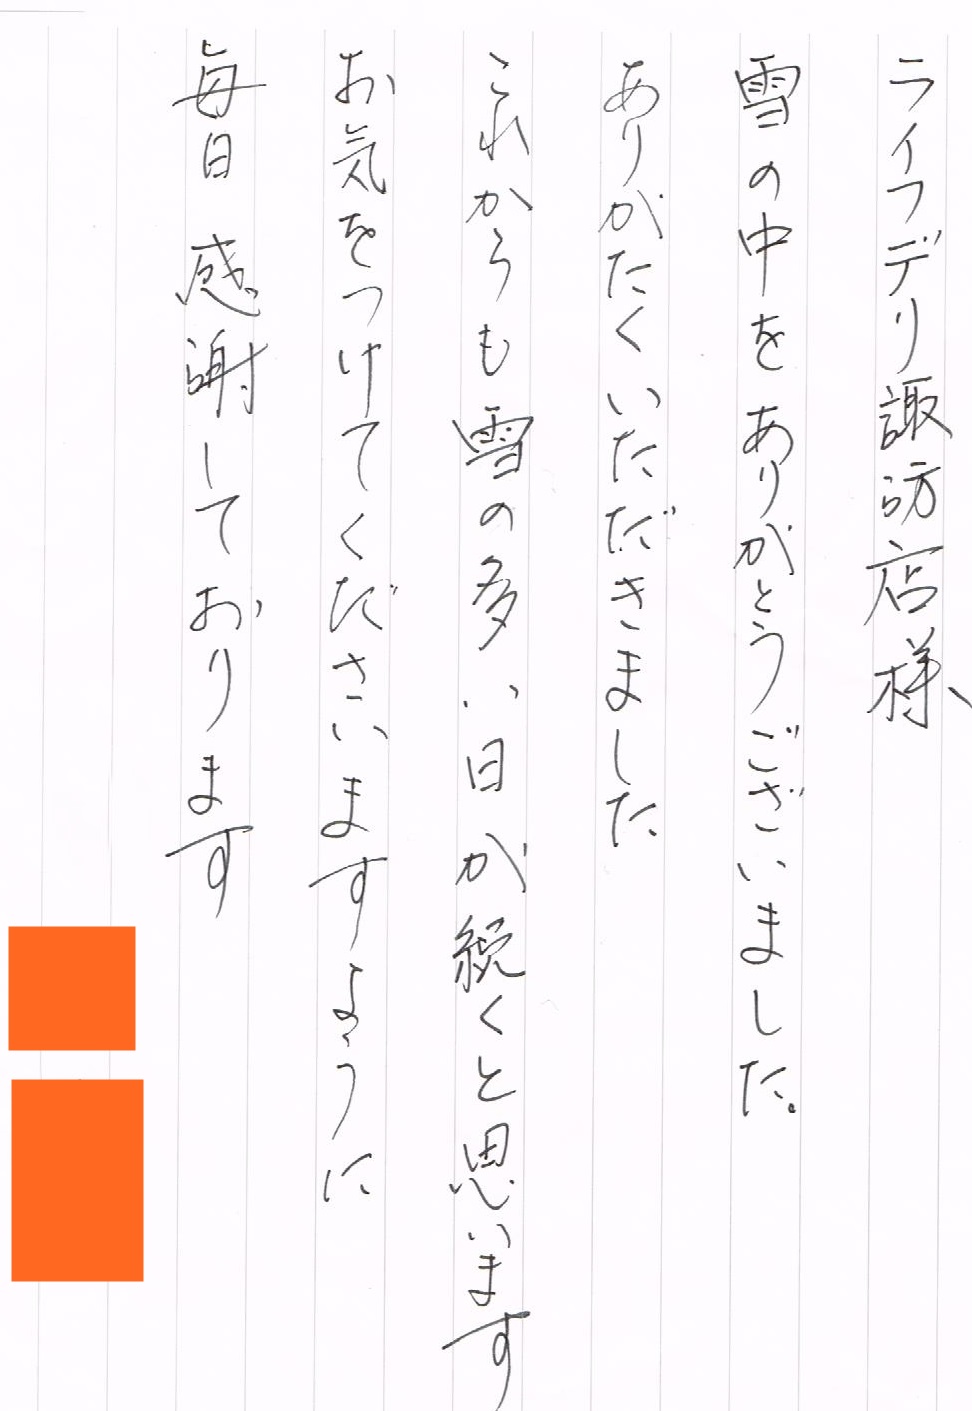 ライフデリ諏訪店様、
雪の中をありがとうございました。
ありがたくいただきました
これからも雪の多い日が続くと思います
お気をつけてくださいますように
毎日感謝しております